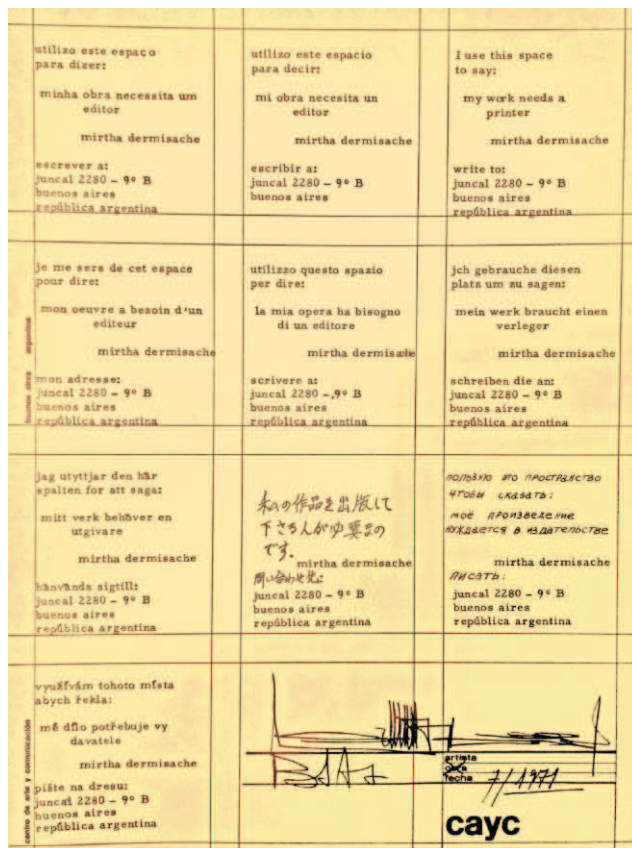 utilizo este espaço
para dizer:
minha obra necessita um
editor
mirtha dermisache
escrever a:
juncal 2280 – 9º B
buenos aires
república argentina
utilizo este espacio
para decir:
mi obra necesita un
editor
mirtha dermisache
escribir a:
juncal 2280 – 9º B
buenos aires
I use this space
to say:
my work needs a
printer
mirtha dermisache
write to:
juncal 2280 – 9º B
buenos aires
república argentina
je me sers de cet espace
pour dire:
mon oeuvre a besoin d'un
editeur
mirtha dermisache
mon adresse:
juncal 2280 – 9º B
buenos aires
república argentina
utilizzo questo spazio
per dire:
la mia opera ha bisogno
di un editore
mirtha dermisache
scrivere a:
juncal 2280 –,9º B
buenos aires
república argentina
jch gebrauche diesen
platz um zu sagen:
mein werk braucht einen
verleger
mirtha dermisache
schreiben die an:
juncal 2280 – 9º B
buenos aires
república argentina
buenos aires argentina
jag utyttjar den här
spalten for att saga:
mitt verk behöver en
utgivare
mirtha dermisache
hänvända sigtill:
juncal 2280 – 9º B
buenos aires
república argentina
私の作品を出版して
下さる人が必要なの
です.
mirtha dermisache
問い合わせ先:
juncal 2280 – 9º B
buenos aires
república argentina
ПОЛЬЗУЮ ЭТО ПРОСТРАНСТВО
ЧТОБЫ СКАЗАТЬ:
МОЁ ПРОИЗВЕДЕНИЕ
НУЖДАЕТСЯ В ИЗДАТЕЛЬСТВЕ
mirtha dermisache
ПИСАТЬ:
juncal 2280 – 9º B
buenos aires
república argentina
využívám tohoto místa
abych řekla:
mé dílo potřebuje vy
davatele
mirtha dermisache
pište na dresu:
juncal 2280 – 9º B
buenos aires
república argentina
centro de arte y comunicación
artista
fecha 7/1971
cayc